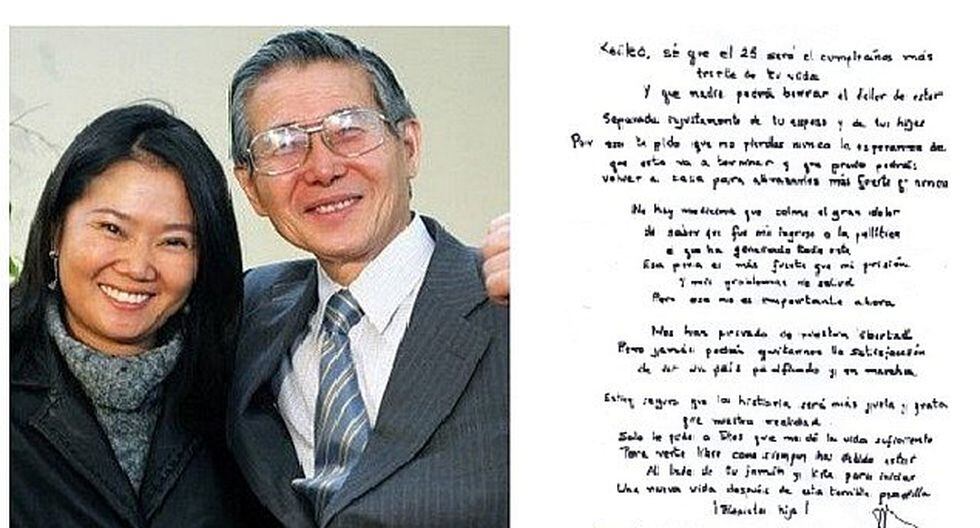 Keiko, sé que el 25 será el cumpleaños más
triste de tu vida
Y que nadie podrá borrar el dolor de estar
Separada injustamente de tu esposo y de tus hijas
Por eso te pido que no pierdas nunca la esperanza de
que esto va a terminar y que pronto podrás
volver a casa para abrazarnos más fuerte q' nunca
No hay medicina que calme el gran dolor
de saber que fue mi ingreso a la política
a que ha generado todo esto
Esa pena es más fuerte que mi prisión
Y mis problemas de salud
Pero eso no es importante ahora
Nos han privado de nuestra libertad
Pero jamás podrán quitarnos la satisfacción
de ver un país pacificado y en marcha
Estoy seguro que la historia será más justa y grata
que nuestra realidad
Solo le pido a Dios que me dé la vida suficiente
Para verte libre como siempre has debido estar
Al lado de tu jamón y Kita para iniciar
Una nueva vida después de esta terrible pesadilla
hija!